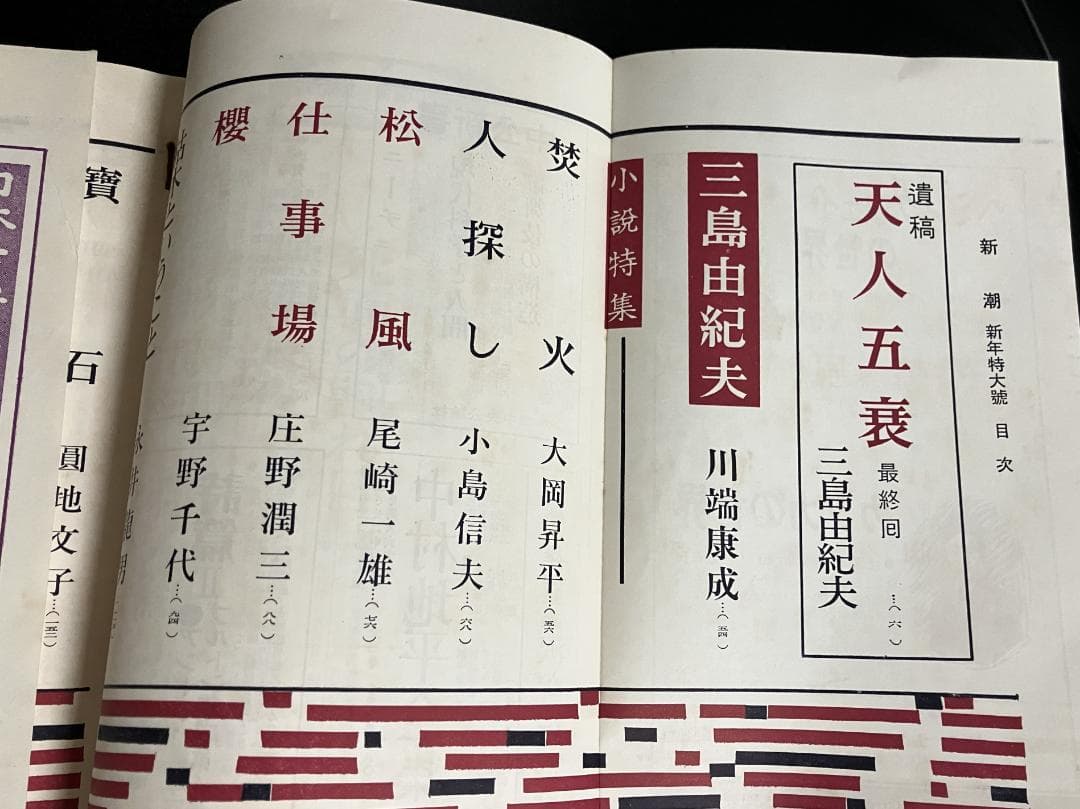 新潮 新年特大號 目次
遺稿
天人五衰 最終回
三島由紀夫…(六)
三島由紀夫 川端康成…(五四)
小説特集
焚火 大岡昇平…(五六)
人探し 小島信夫…(六八)
松風 尾崎一雄…(七六)
仕事場 庄野潤三…(八八)
櫻 宇野千代…(九四)
寶石 圓地文子…(一三一)